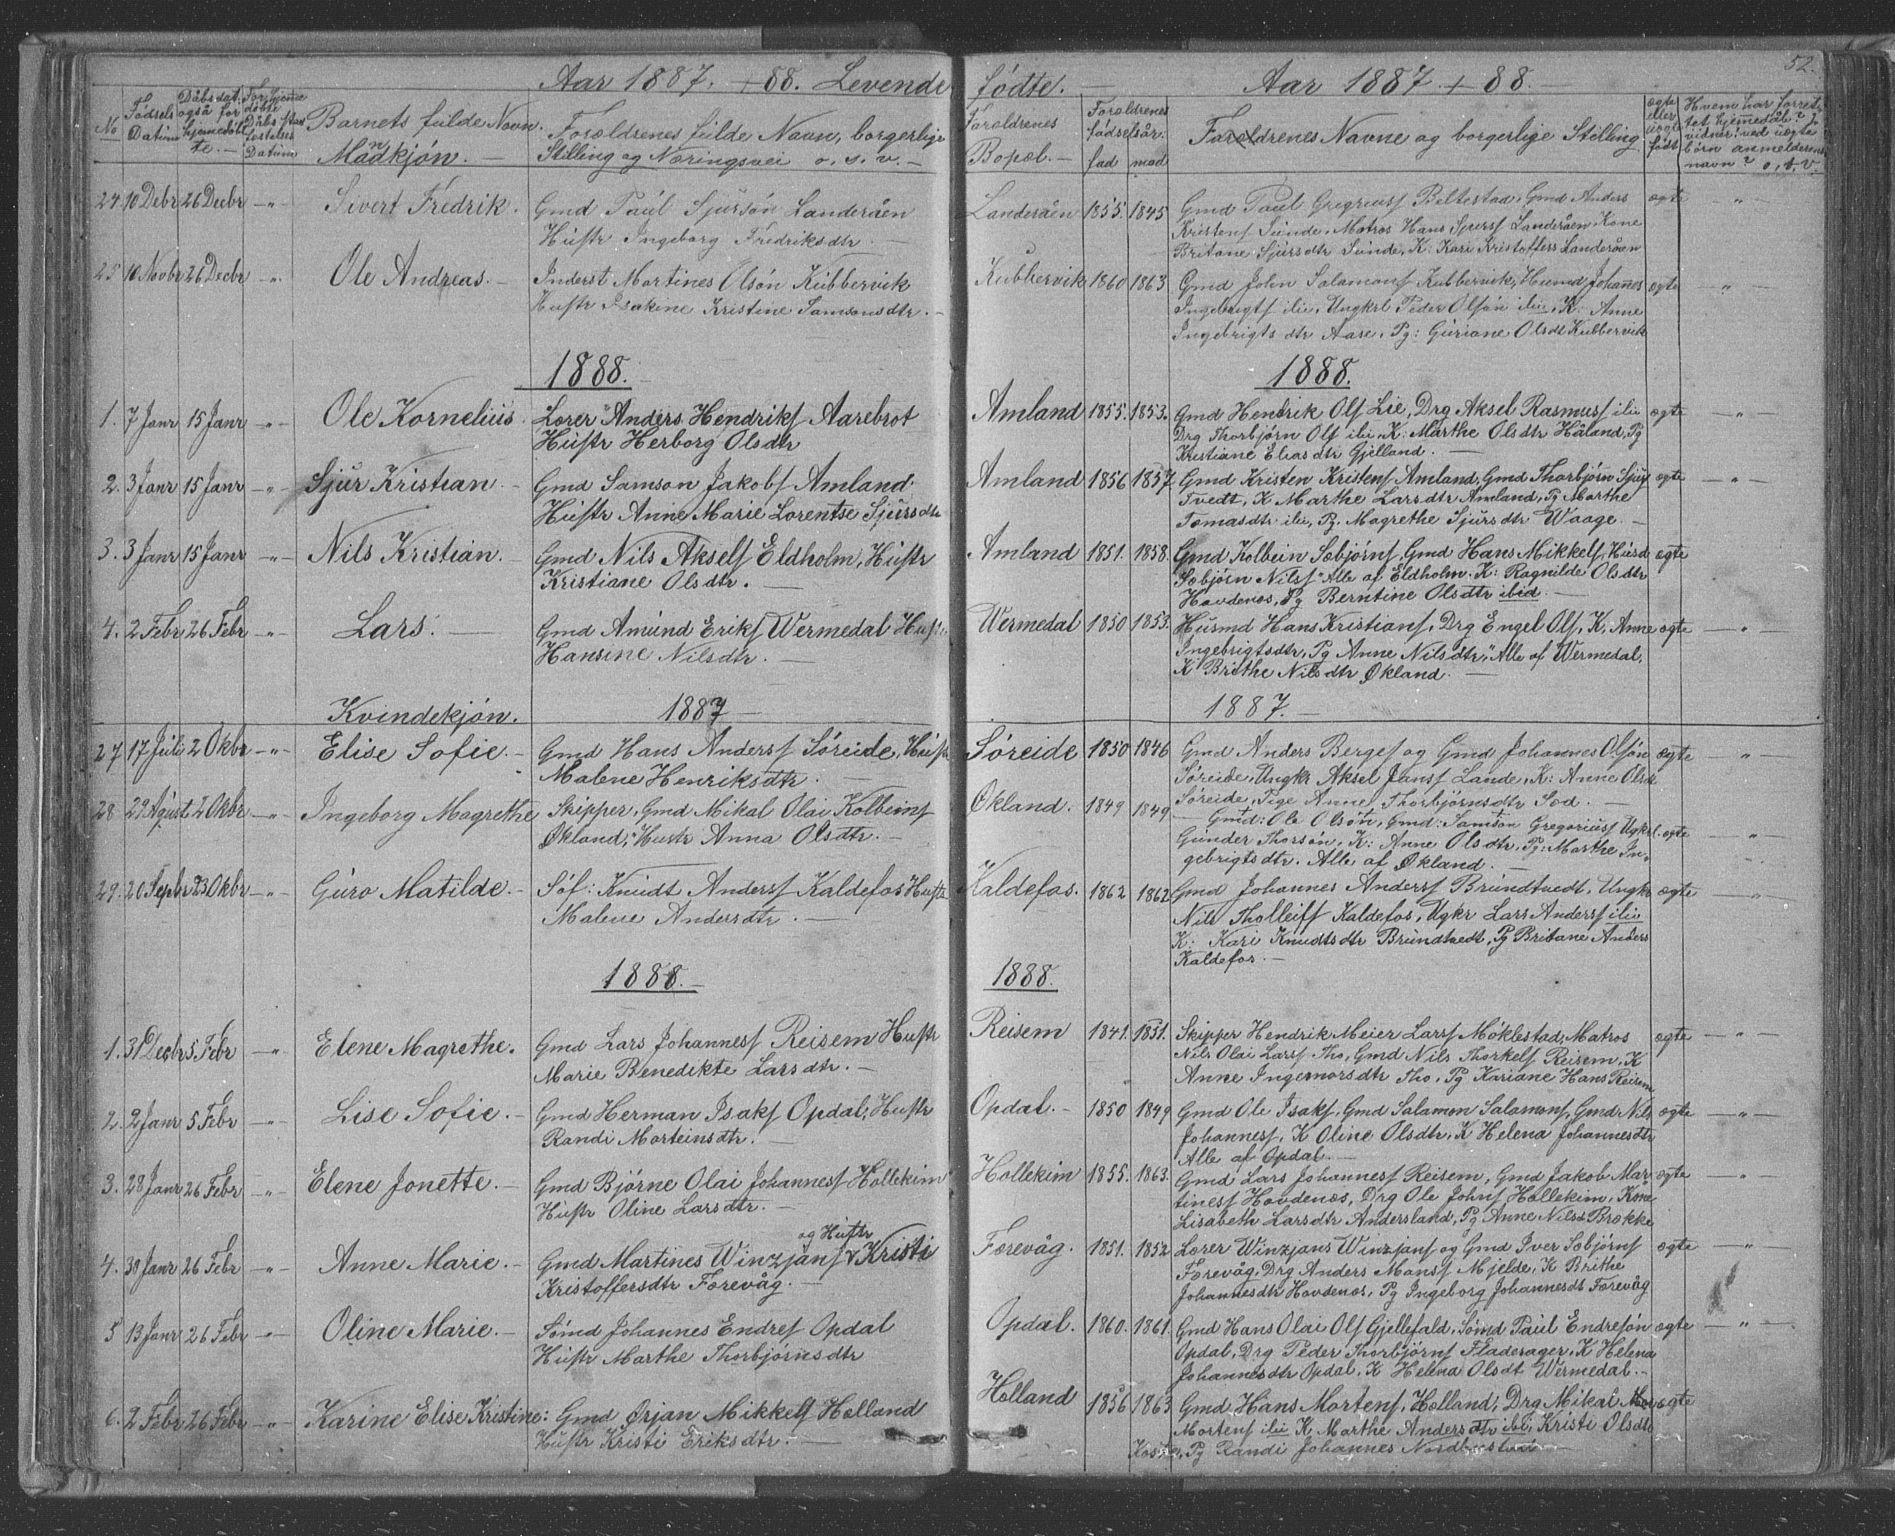 52.
Aar 1887. + 88. Levende fødte. Aar 1887 + 88.
No
Fødsels Datum
Barnets fulde Navn.
Mandkjøn.
Forældrenes fulde Navn, borgerlige
Stilling og Næringsvei o. s. v.
Forældrenes
Bopæl.
Forældrenes
fødselsår.
fad mod
Forældrenes Navne og borgerlige Stilling
ægte eller født
24. 10 Debr 26 Decbr Sivert Fredrik. Gmd Paul Sjursøn Landeråen
Hustr Ingeborg Fredriksdtr.
Landeråen 1855. 1845 Gmd Paul Gregriuss Beltestad, Gmd Anders ægte
Kristens Sunde, Matros Hans Sjurss Landeråen, Kone
Britane Sjursdtr Sunde, K. Kari Kristoffers Landeråen
25 10 Novbr 26 Decbr Ole Andreas. Inderst Martines Olsøn Kubbervik
Hustr Isakine Kristine Samsonsdtr.
Kubbervik 1860 1863 Gmd John Salamons Kubbervik, Husmd Johanes ægte
Ingebrigts Ungkrl Peder Olsøn K. Anne
Ingebrigtsdtr Aase, Pg: Guriane Olsdt Kubbervik
1888. 1888.
1. 7 Janr 15 Janr Ole Kornelius. Lærer Anders Hendriks Aarebrot
Hustr Herborg Olsdtr
Amland 1855. 1853. Gmd Hendrik Ols Lie, Drg Aksel Rasmuss ægte
Drg Thorbjørn Ols K: Marthe Olsdtr Håland, Pg
Kristiane Eliasdtr Gjelland.
2. 3 Janr 15 Janr Sjur Kristian. Gmd Samson Jakobs Amland.
Hustr Anne Marie Lorentse Sjursdtr
Amland 1856 1857 Gmd Kristen Kristens Amland, Gmd Thorbjørn Sjurs ægte
Tvedt, K Marthe Larsdtr Amland, Pg Marthe
Tomasdtr Pg. Magrethe Sjursdtr Waage.
3. 3 Janr 15 Janr Nils Kristian. Gmd Nils Aksels Eldholm, Hustr
Kristiane Olsdtr.
Amland 1851. 1858. Gmd Kolbein Sæbjørns, Gmd Hans Mikkels, Husd ægte
Sæbjørn Nilss Alle af Eldholm. K: Ragnilde Olsdtr
Hovdenæs, Pg Berntine Olsdtr ibid.
4. 2 Febr 26 Febr Lars. Gmd Amund Eriks Wermedal Hustr
Hansine Nilsdtr.
Wermedal 1850 1853. Husmd Hans Kristians, Drg Engel Ols, K. Anne ægte
Ingebrigtsdtr, Pg Anne Nilsdtr, Alle af Wermedal,
K Brithe Nilsdtr Økland.
Kvindekjøn. 1887 1887.
27 17 Juli 2 Okbr Elise Sofie. Gmd Hans Anderss Søreide, Hustr
Malene Henriksdtr.
Søreide 1850 1846 Gmd Anders Berges og Gmd Johannes Olsøn ægte
Søreide, Ungkr Aksel Janss Lande, K: Anne Olsd
Søreide, Pige Anne Thorbjørnsdtr Sod.
28 29 August 2 Okbr Ingeborg Magrethe Skipper, Gmd Mikal Olai Kolbeins
Økland, Hustr Anna Olsdtr.
Økland. 1849 1849 Gmd: Ole Olsøn, Gmd: Samson Gregorius Ugkrl. ægte
Gunder Thorsøn, K: Anne Olsdtr, Pg: Marthe In-
gebrigtsdtr. Alle af Økland.
29. 20 Septr 23 Okbr Guro Matilde. Søf: Knudt Anderss Kaldefos Hustr
Malene Andersdtr.
Kaldefos. 1862 1862 Gmd Johannes Anderss Brundtvedt, Ungkr ægte
Nils Tholleifs Kaldefos, Ugkr Lars Anderss
K: Kari Knudtsdtr Brundtvedt, Pg Britane Anders
Kaldefos.
1888. 1888.
1. 31 Decbr 5 Febr Elene Magrethe. Gmd Lars Johanness Reisem Hustr
Marie Benedikte Larsdtr.
Reisem 1841. 1851. Skipper Hendrik Meier Larss Møklestad, Matros ægte
Nils Olai Larss Tho, Gmd Nils Thorkels Reisem, K
Anne Ingemorsdtr Tho, Pg Kariane Hans Reisem
2. 2 Janr 5 Febr Lise Sofie. Gmd Herman Isaks Opdal, Hustr
Randi Morteinsdtr.
Opdal. 1850 1849 Gmd Ole Isaks, Gmd Salamon Salamons, Gmd Nils ægte
Johanness, K Oline Olsdtr, K Helena Johannesdtr
Alle af Opdal.
3. 28 Janr 26 Febr Elene Jonette. Gmd Bjørne Olai Johanness Hollekim
Hustr Oline Larsdtr.
Hollekim 1855. 1863. Gmd Lars Johanness Reisem, Gmd Jakob Mar ægte
tiness Hovdenæs, Drg Ole Johns Hollekim, Kone
Lisabeth Larsdtr Andersland, Pg Anne Nilsd Brække
4. 30 Janr 26 Febr Anne Marie. Gmd Martines Winzjans og Hustr Kristi
Kristoffersdtr Forevåg.
Forevåg. 1851. 1852 Lærer Winzjans Winzjans og Gmd Iver Sæbjørns ægte
Forevåg, Drg Anders Monss Mjelde, K Brithe
Johannesdtr Hovdenæs, Pg Ingeborg Johannesdt Forevåg
5 13 Janr 26 Febr Oline Marie. Sømd Johannes Endres Opdal
Hustr Marthe Thorbjørnsdtr
Opdal. 1860. 1861. Gmd Hans Olai Ols Gjellefald, Sømd Paul Endresøn ægte
Opdal, Drg Peder Thorbjørns Fladerager, K Helena
Johannesdtr Opdal, K Helena Olsdt Wermedal.
6. 2 Febr 26 Febr Karine Elise Kristine: Gmd Ørjan Mikkels Holland
Hustr Kristi Eriksdtr.
Holland 1856 1863 Gmd Hans Mortens, Holland, Drg Mikal ægte
Mortens K Marthe Andersdtr ibd, Kristi Olsdtr
Pg Randi Johannes